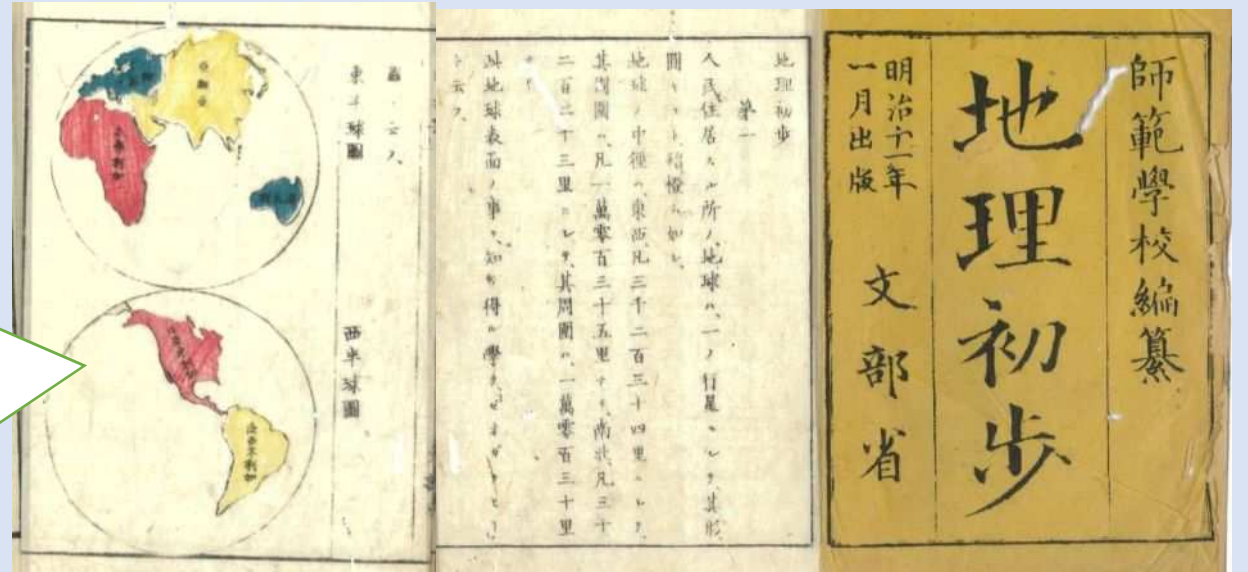 師範學校編纂
地理初歩
明治十一年
一月出版
文部省
地理初歩
第一
人民住居スル所ノ地球ハ、一ノ行星ニシテ、其形
圓キコト、橙ノ如シ、
地球ノ中徑ハ、東西凡三千二百三十四里ニシテ、
其周圍ハ、凡一萬零百三十五里ナリ、南北凡三千
二百二十三里ニシテ、其周圍ハ、一萬零百三十里
此地球表面ノ事ヲ、知リ得ル學ヲ、
ト云フ、
云フ、
東半球圖
西半球圖
亞細亞
亞弗利加
北亞米利加
南亞米利加